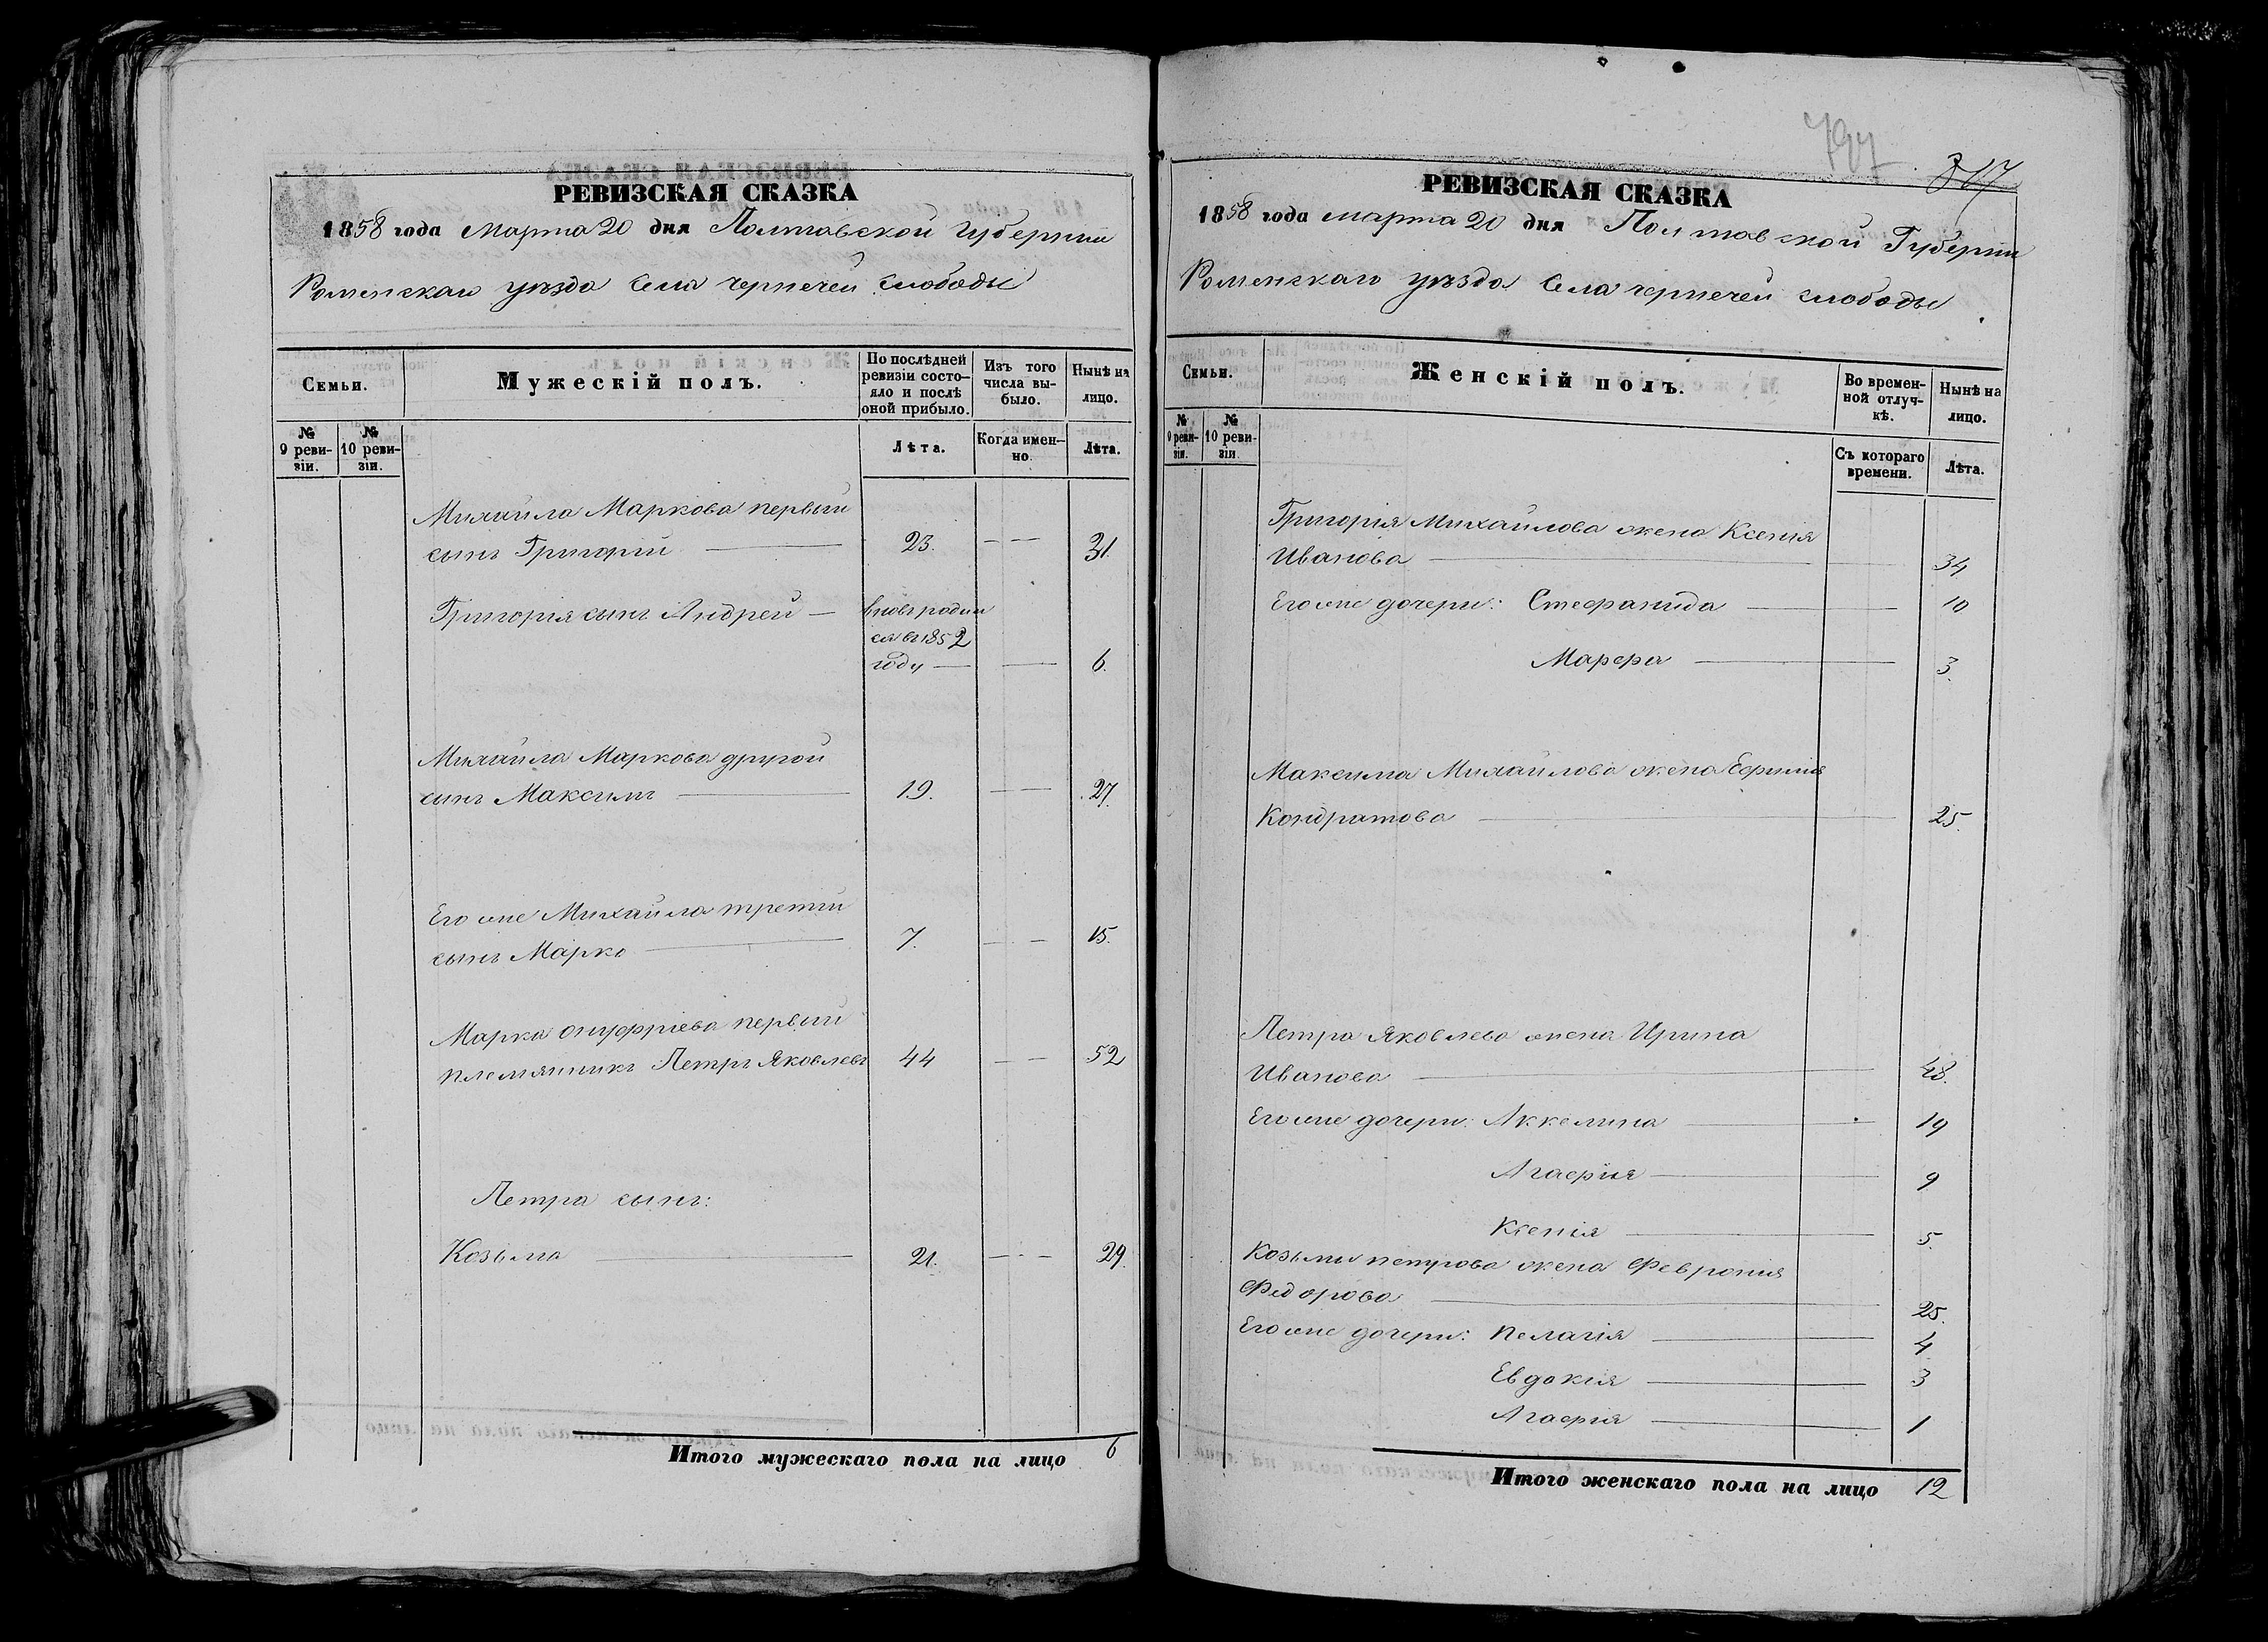 РЕВИЗСКАЯ СКАЗКА
1858 года Марта 20 дня Полтавской губернии
Роменскаго уѣзда села Чернечей слободы
Семьи.
Мужескій полъ.
По послѣдней ревизіи состо-
яло и послѣ оной прибыло.
Изъ того числа вы-
было.
Нынѣ на лицо.
№ 9 реви-
зіи.
№ 10 реви-
зіи.
Лѣта.
Когда имен-
но.
Лѣта.
Михайла Маркова первый
сынъ Григорій 23. 31.
Григорія сынъ Андрей вновь родил
ся въ 1852
году 6.
Михайла Маркова другой
сынъ Максимъ 19. 27.
Его же Михайла третій
сынъ Марко 7. 15.
Марка Онуфріева первый
племянникъ Петръ Яковлевъ 44 52
Петра сынъ:
Козьма 21. 29.
Итого мужескаго пола на лицо 6
797
817
РЕВИЗСКАЯ СКАЗКА
1858 года марта 20 дня Полтавской Губерніи
Роменскаго уѣзда села Чернечей слободы
Семьи.
Женскій полъ.
Во времен-
ной отлуч-
кѣ.
Нынѣ на лицо.
№ 9 реви-
зіи.
№ 10 реви-
зіи.
Съ котораго времени.
Лѣта.
Григорія Михайлова жена Ксенія
Иванова 34
Его же дочери: Стефанида 10
Марфа 3.
Максима Михайлова жена Ефимія
Кондратова 25.
Петра Яковлева жена Ирина
Иванова 48.
Его же дочери: Аккелина 19
Агафія 9
Ксенія 5.
Козьмы Петрова жена Феврония
Федорова 25.
Его же дочери: Пелагія 4
Евдокія 3
Агафія 1
Итого женскаго пола на лицо 12